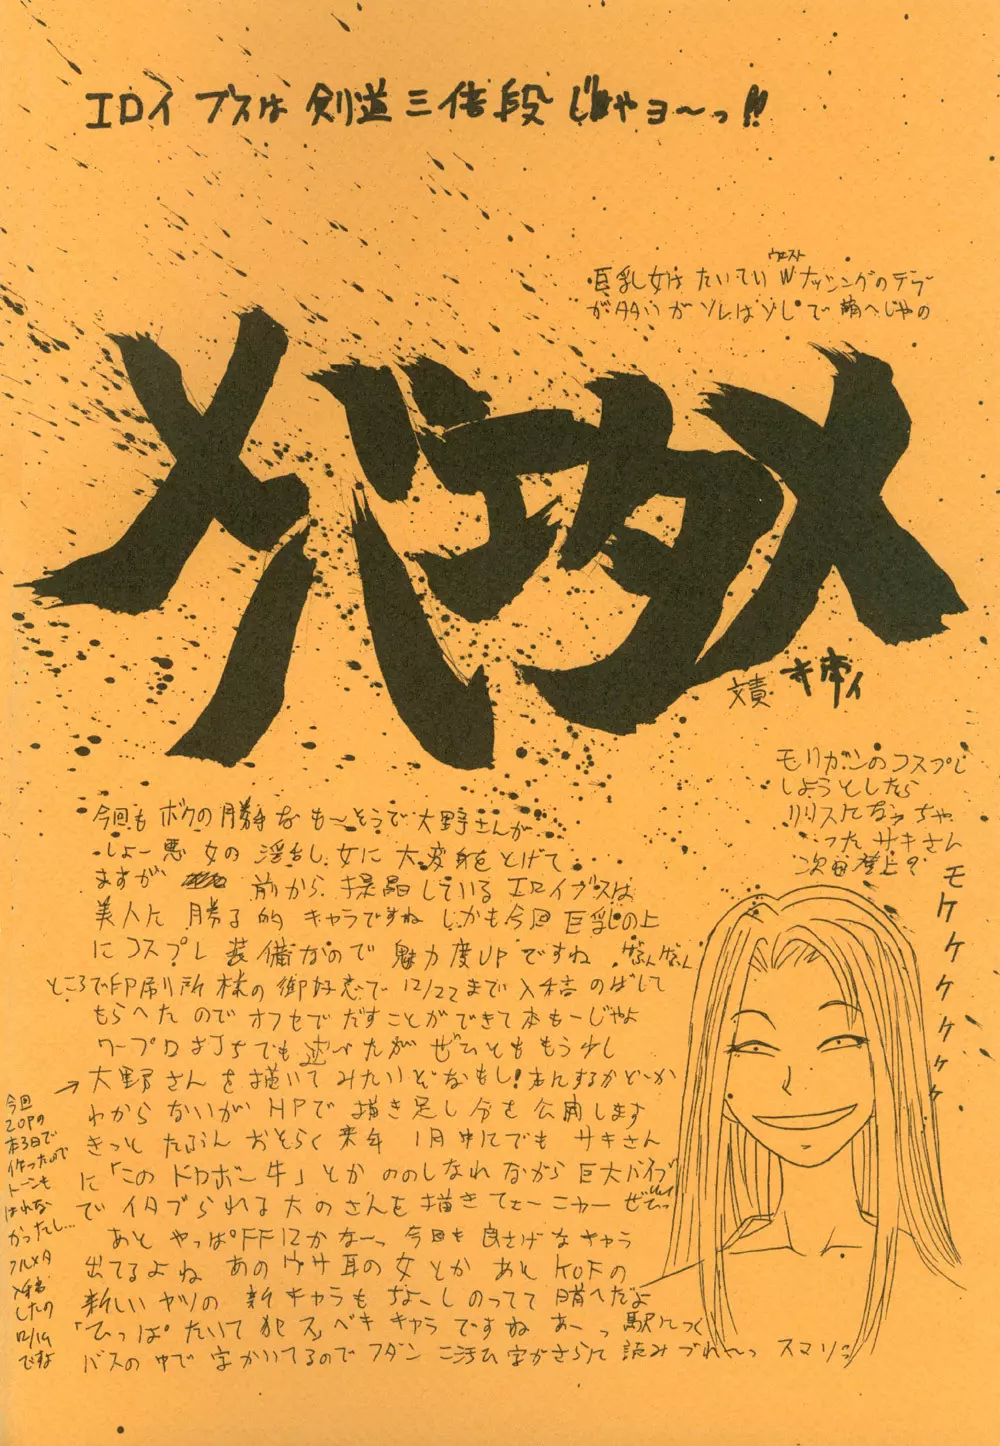 エロイ ブスは 剣道 三倍段 じゃヨ〜っ!!
ウエスト
巨乳女は たいてい Wナッシングのデブ
が多いが ソレはソレで 萌へじゃの
メバエタメ
文責
モリガンのコスプレ
しようとしたら
リリスになっちゃ
った サキさん
次回登上?
モケケケケケケ
今回も ボクの勝手 な も〜そうで 大野さんが
しょー悪女の 淫乱し女に 大変身をとげて
ますが 前から 提晶している エロイブスは
美人に 勝る 的 キャラですね しかも今回 巨乳の上
にコスプレ 装備なので 魅力度UPですね
ところで印刷所様の 御好意で 12/22まで入稿 のばして
もらへた ので オフセで だすことができて 本もーじゃよ
ワープロ打ちでも 述べたが ぜひとも もう少し
→大野さん を描いて みたいぞなもし! 本にするかどーか
わからないが HPで 描き足し分を 公開します
きっと たぶん おそらく 来年 1月中にでも サキさん
に「この ドロボー牛」とか ののしなれ ながら 巨大バイブ
で イタブられる 大のさんを 描き てェーニャー ぜひっ
あと やっぱFF12かな〜っ 今回も 良さげな キャラ
出てるよね あの ウサ耳の女とか あと KOFの
新しいヤツの 新キャラも なーしのってて 萌へだよ
「ひっぱたいて 犯ス」ベキ キャラですね あーっ 駅につく
バスの中で 字かいてるので フダン ニ汚ひ字がさらに 読みづれ〜っ スマソ
今回
20Pの
本3日で
作ったので
トーンも
はれな
かったし…
フルメタ
入稿
したの
12/19
ですよ